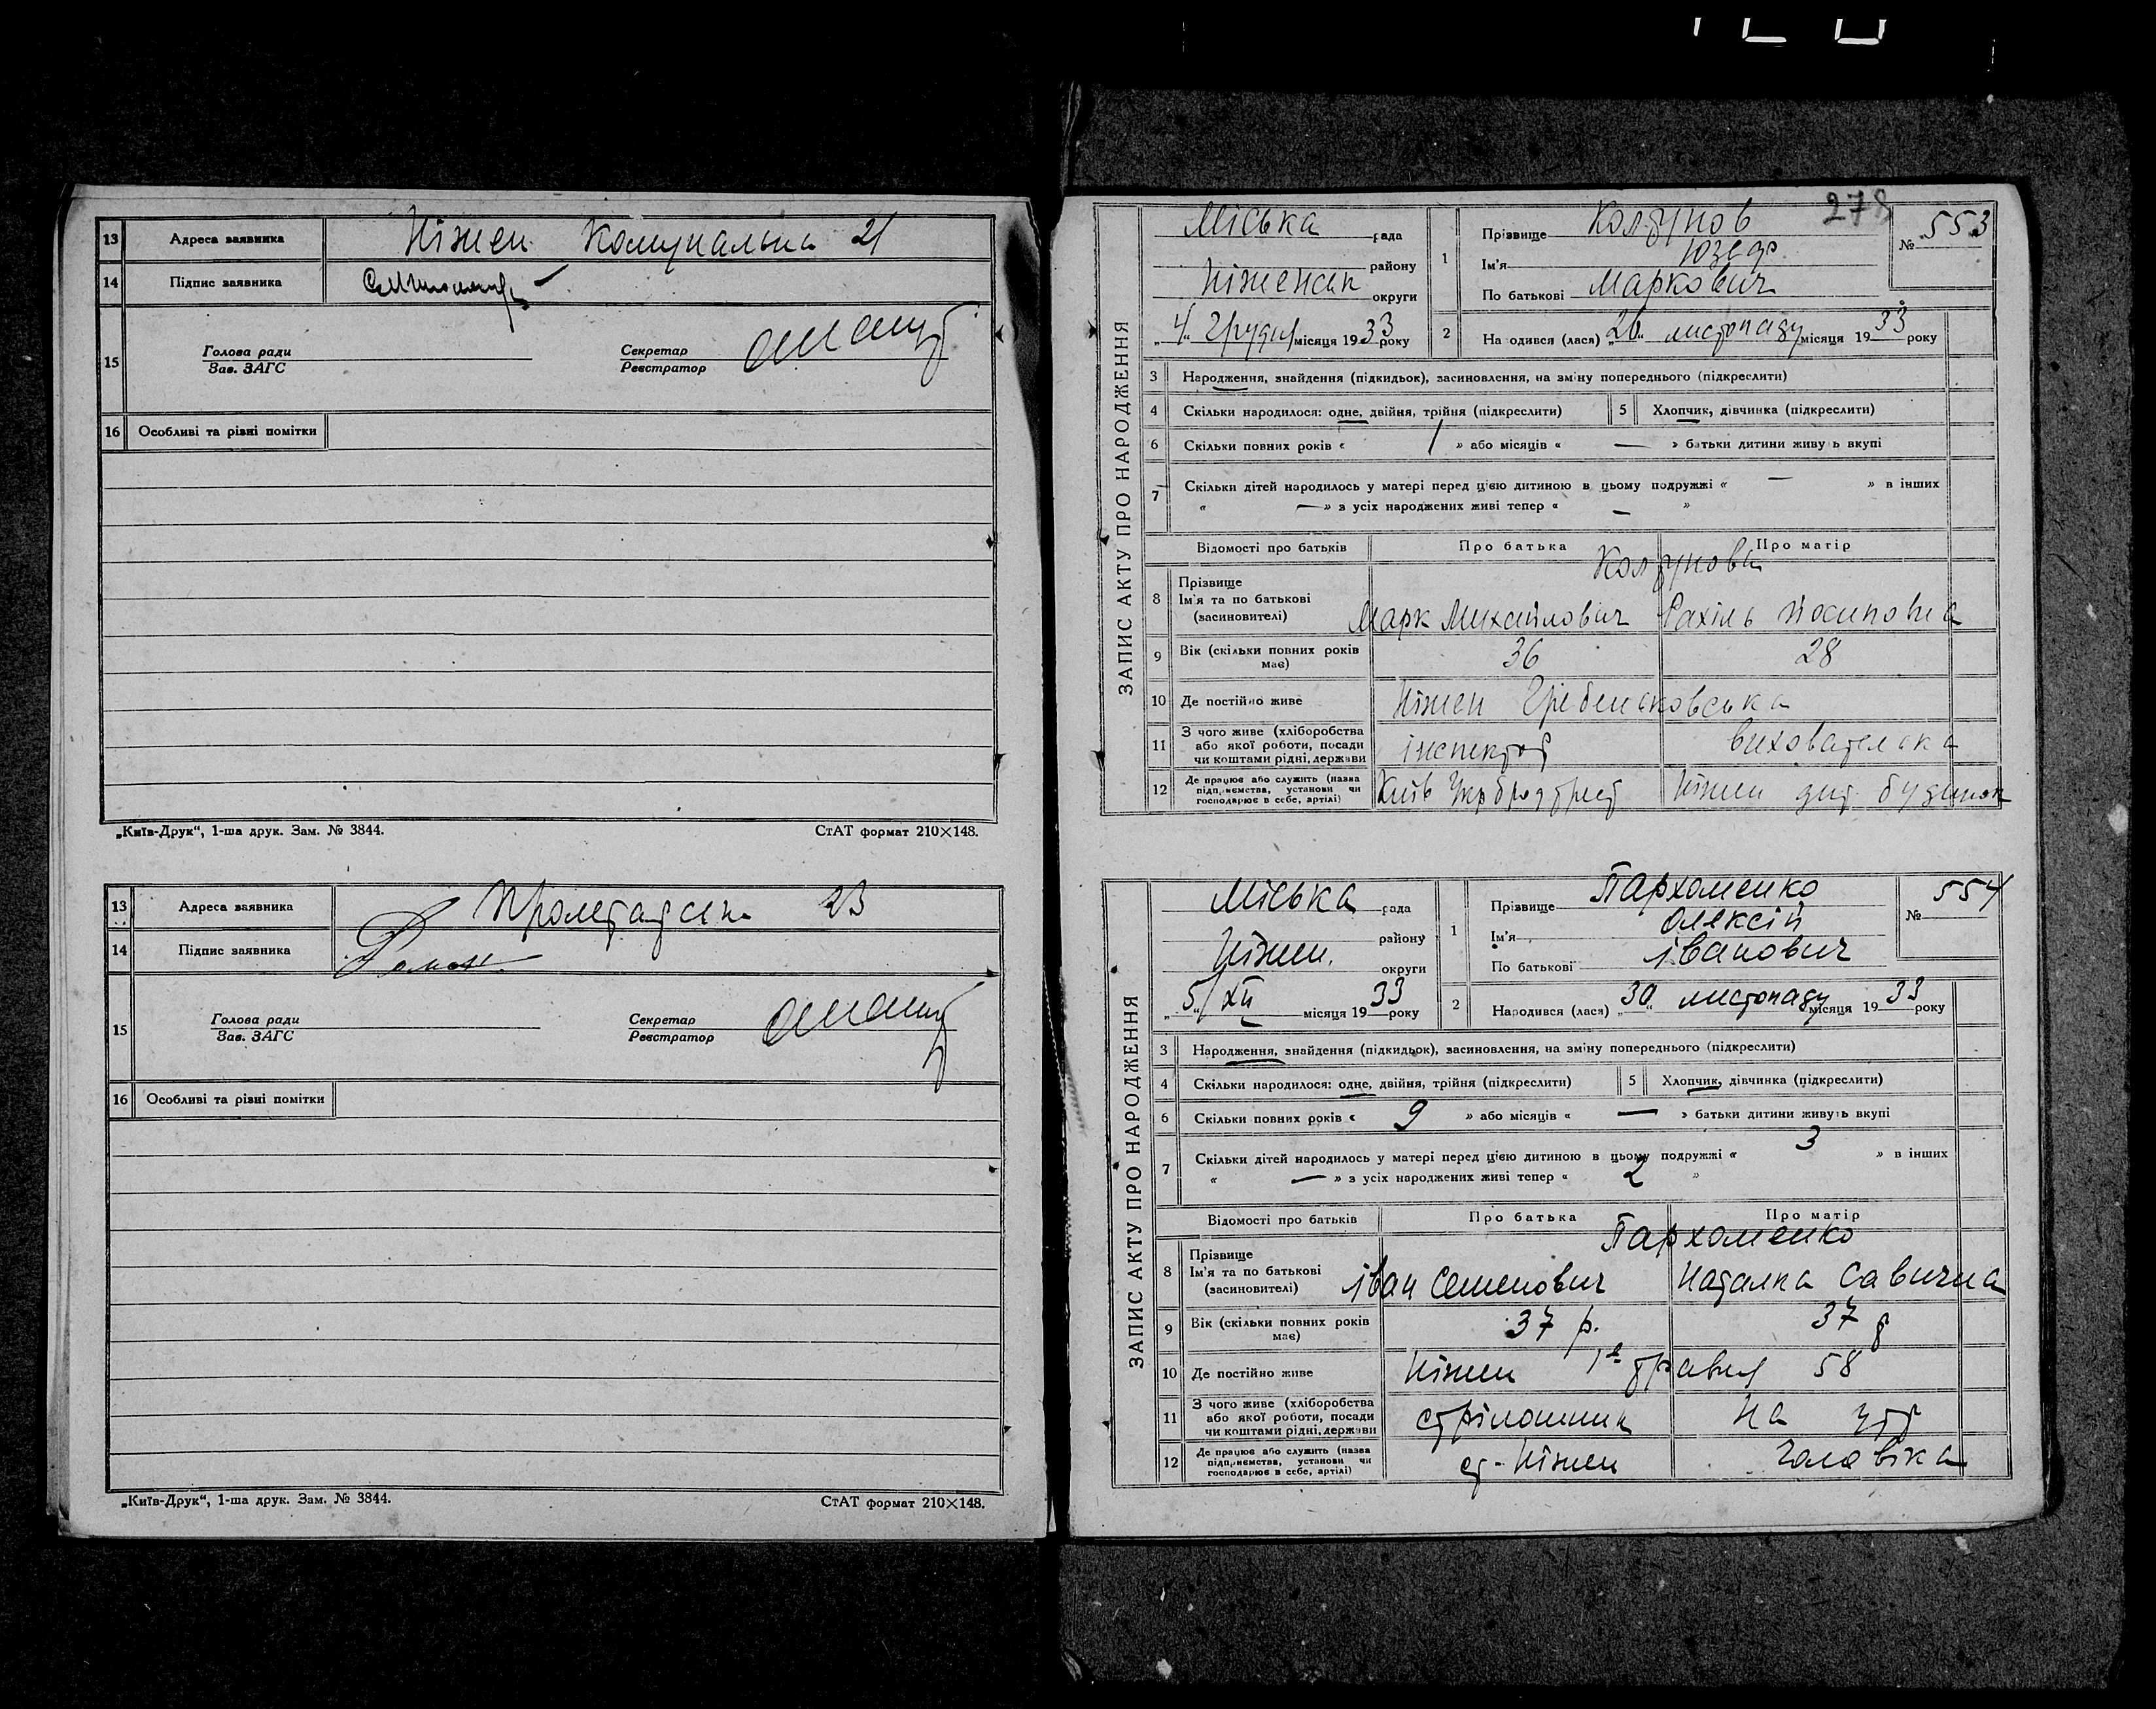 13 Адреса заявника Ніжен Комунальна 21
14 Підпис заявника
15 Голова ради Секретар
Зав. ЗАГС Реєстратор
16 Особливі та різні помітки
„Київ-Друк“, 1-ша друк. Зам. № 3844. СтАТ формат 210×148.
13 Адреса заявника 23
14 Підпис заявника
15 Голова ради Секретар
Зав. ЗАГС Реєстратор
16 Особливі та різні помітки
„Київ-Друк“, 1-ша друк. Зам. № 3844. СтАТ формат 210×148.
278
ЗАПИС АКТУ ПРО НАРОДЖЕННЯ
Міська рада
району
Ніженськ округи
„4“ Грудня місяця 1933 року
1 Прізвище Колтунов
Ім'я Юзеф
По батькові Маркович
№ 553
2 На одився (лася) „26“ листопаду місяця 1933 року
3 Народження, знайдення (підкидьок), засиновлення, на зміну попереднього (підкреслити)
4 Скільки народилося: одне, двійня, трійня (підкреслити) 5 Хлопчик, дівчинка (підкреслити)
6 Скільки повних років « 1 » або місяців « — » батьки дитини живу ь вкупі
7 Скільки дітей народилось у матері перед цією дитиною в цьому подружжі « — » в інших
« — » з усіх народжених живі тепер « — »
Відомості про батьків Про батька Про матір
Колтунови
8 Прізвище
Ім'я та по батькові
(засиновителі) Марк Михайлович Рахіль Йосиповна
9 Вік (скільки повних років має) 36 28
10 Де постійно живе Ніжен Гребеньковська
11 З чого живе (хліборобства
або якої роботи, посади
чи коштами рідні, держави інспектор вихователька
12 Де працює або служить (назва
підприємства, установи чи
господарює в себе, артілі) Київ Ніжен дит. будинок
ЗАПИС АКТУ ПРО НАРОДЖЕННЯ
Міська рада
району
Ніжен. округи
„5“/XII місяця 1933 року
1 Прізвище Пархоменко
Ім'я Олексій
По батькові Іванович
№ 554
2 Народився (лася) „30“ листопаду місяця 1933 року
3 Народження, знайдення (підкидьок), засиновлення, на зміну попереднього (підкреслити)
4 Скільки народилося: одне, двійня, трійня (підкреслити) 5 Хлопчик, дівчинка (підкреслити)
6 Скільки повних років « 9 » або місяців « — » батьки дитини живуть вкупі
7 Скільки дітей народилось у матері перед цією дитиною в цьому подружжі « 3 » в інших
« — » з усіх народжених живі тепер « 2 »
Відомості про батьків Про батька Про матір
Пархоменко
8 Прізвище
Ім'я та по батькові
(засиновителі) Іван Семенович Наталка Савична
9 Вік (скільки повних років має) 37 р. 37 р
10 Де постійно живе Ніжен 1е травня 58
11 З чого живе (хліборобства
або якої роботи, посади
чи коштами рідні, держави стрілошник На утр
12 Де працює або служить (назва
підприємства, установи чи
господарює в себе, артілі) ст-Ніжен чоловіка